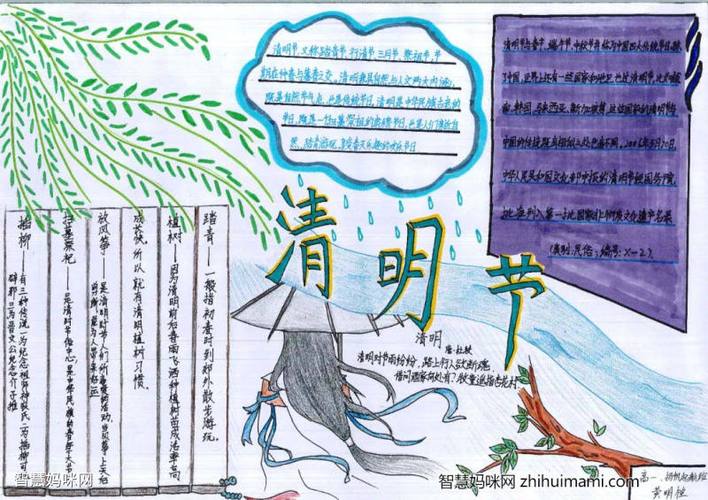 清明节,又称踏青节、行清节、三月节、祭祖节,节
期在仲春与暮春之交。清明兼具自然与人文两大内涵,
既是自然节气点,也是传统节日,清明是中华民族古老的
节日,既是一个扫墓祭祖的肃穆节日,也是人们亲近自
然、踏青游玩、享受春天乐趣的欢乐节日
清明节与春节、端午节、中秋节并称为中国四大传统节日。除
了中国,世界上还有一些国家和地区也过清明节,比如越
南、韩国、马来西亚、新加坡等,这些国家的清明节与
中国的传统既有相似之处也有不同。2006年5月20日,
中华人民共和国文化部申报的清明节经国务院
批准列入第一批国家级非物质文化遗产名录
(类别:民俗;编号:X-2)
清明节
踏青——一般指初春时到郊外散步游玩。
植树——因为清明前后春雨飞洒种植树苗成活率高
成长快,所以就有清明植树习惯
放风筝——是清明时节人们所喜爱的活动,
扫墓祭祀——是清明节俗中心,
插柳——有三种传说一为纪念祖师神农氏二为插柳可
辟邪三为晋文公纪念介子推
清明
唐·杜牧
清明时节雨纷纷,路上行人欲断魂
借问酒家何处有?牧童遥指杏花村
高一、扬帆起航班
黄明桂
智慧妈咪网
智慧妈咪网 zhihuimami.com